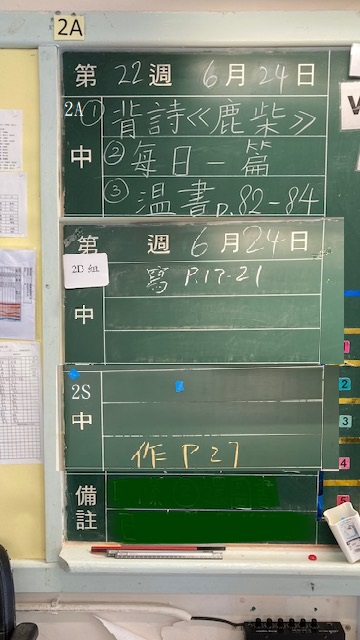 2A
第22週 6月24日
2A ① 背詩《鹿柴》
中 ② 每日一篇
③ 温書 p.82-84
第 週 6月24日
2B組
寫 P.17-21
中
2S
中
作 P27
備註